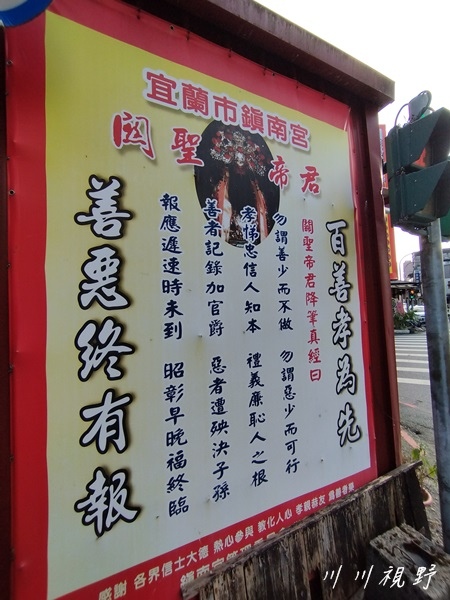 宜蘭市鎮南宮
關聖帝君
百善孝為先
關聖帝君降筆真經曰
勿謂善少而不做 勿謂惡少而可行
孝悌忠信人知本 禮義廉恥人之根
善者記錄加官爵 惡者遭殃決子孫
報應遲速時未到 昭彰早晚福終臨
善惡終有報
感謝 各界信士大德 熱心參與 教化人心 孝親恭友
鎮南宮管理
川川視野